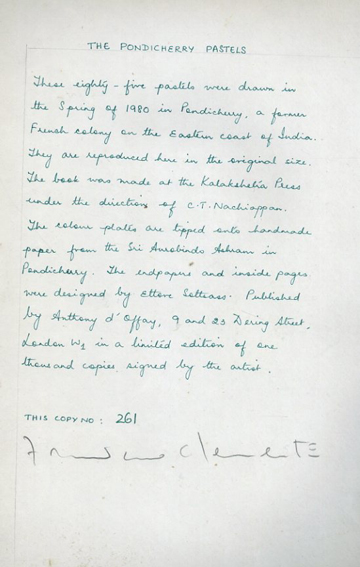 THE PONDICHERRY PASTELS
These eighty-five pastels were drawn in
the Spring of 1980 in Pondicherry, a former
French colony on the Eastern coast of India.
They are reproduced here in the original size.
The book was made at the Kalakshetra Press
under the direction of C.T. Nachiappan.
The colour plates are tipped onto handmade
paper from the Sri Aurobindo Ashram in
Pondicherry. The endpapers and inside pages
were designed by Ettore Sottsass. Published
by Anthony d'Offay, 9 and 23 Dering Street,
London W1 in a limited edition of one
thousand copies signed by the artist.
THIS COPY NO: 261
Francesco Clemente